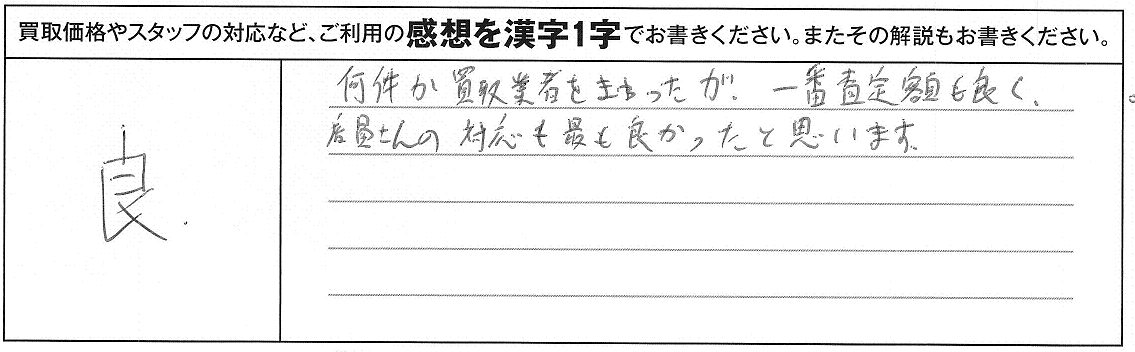 買取価格やスタッフの対応など、ご利用の感想を漢字1字でお書きください。またその解説もお書きください。
良.
何件か買取業者をまわったが、一番査定額も良く、
店員さんの対応も最も良かったと思います。